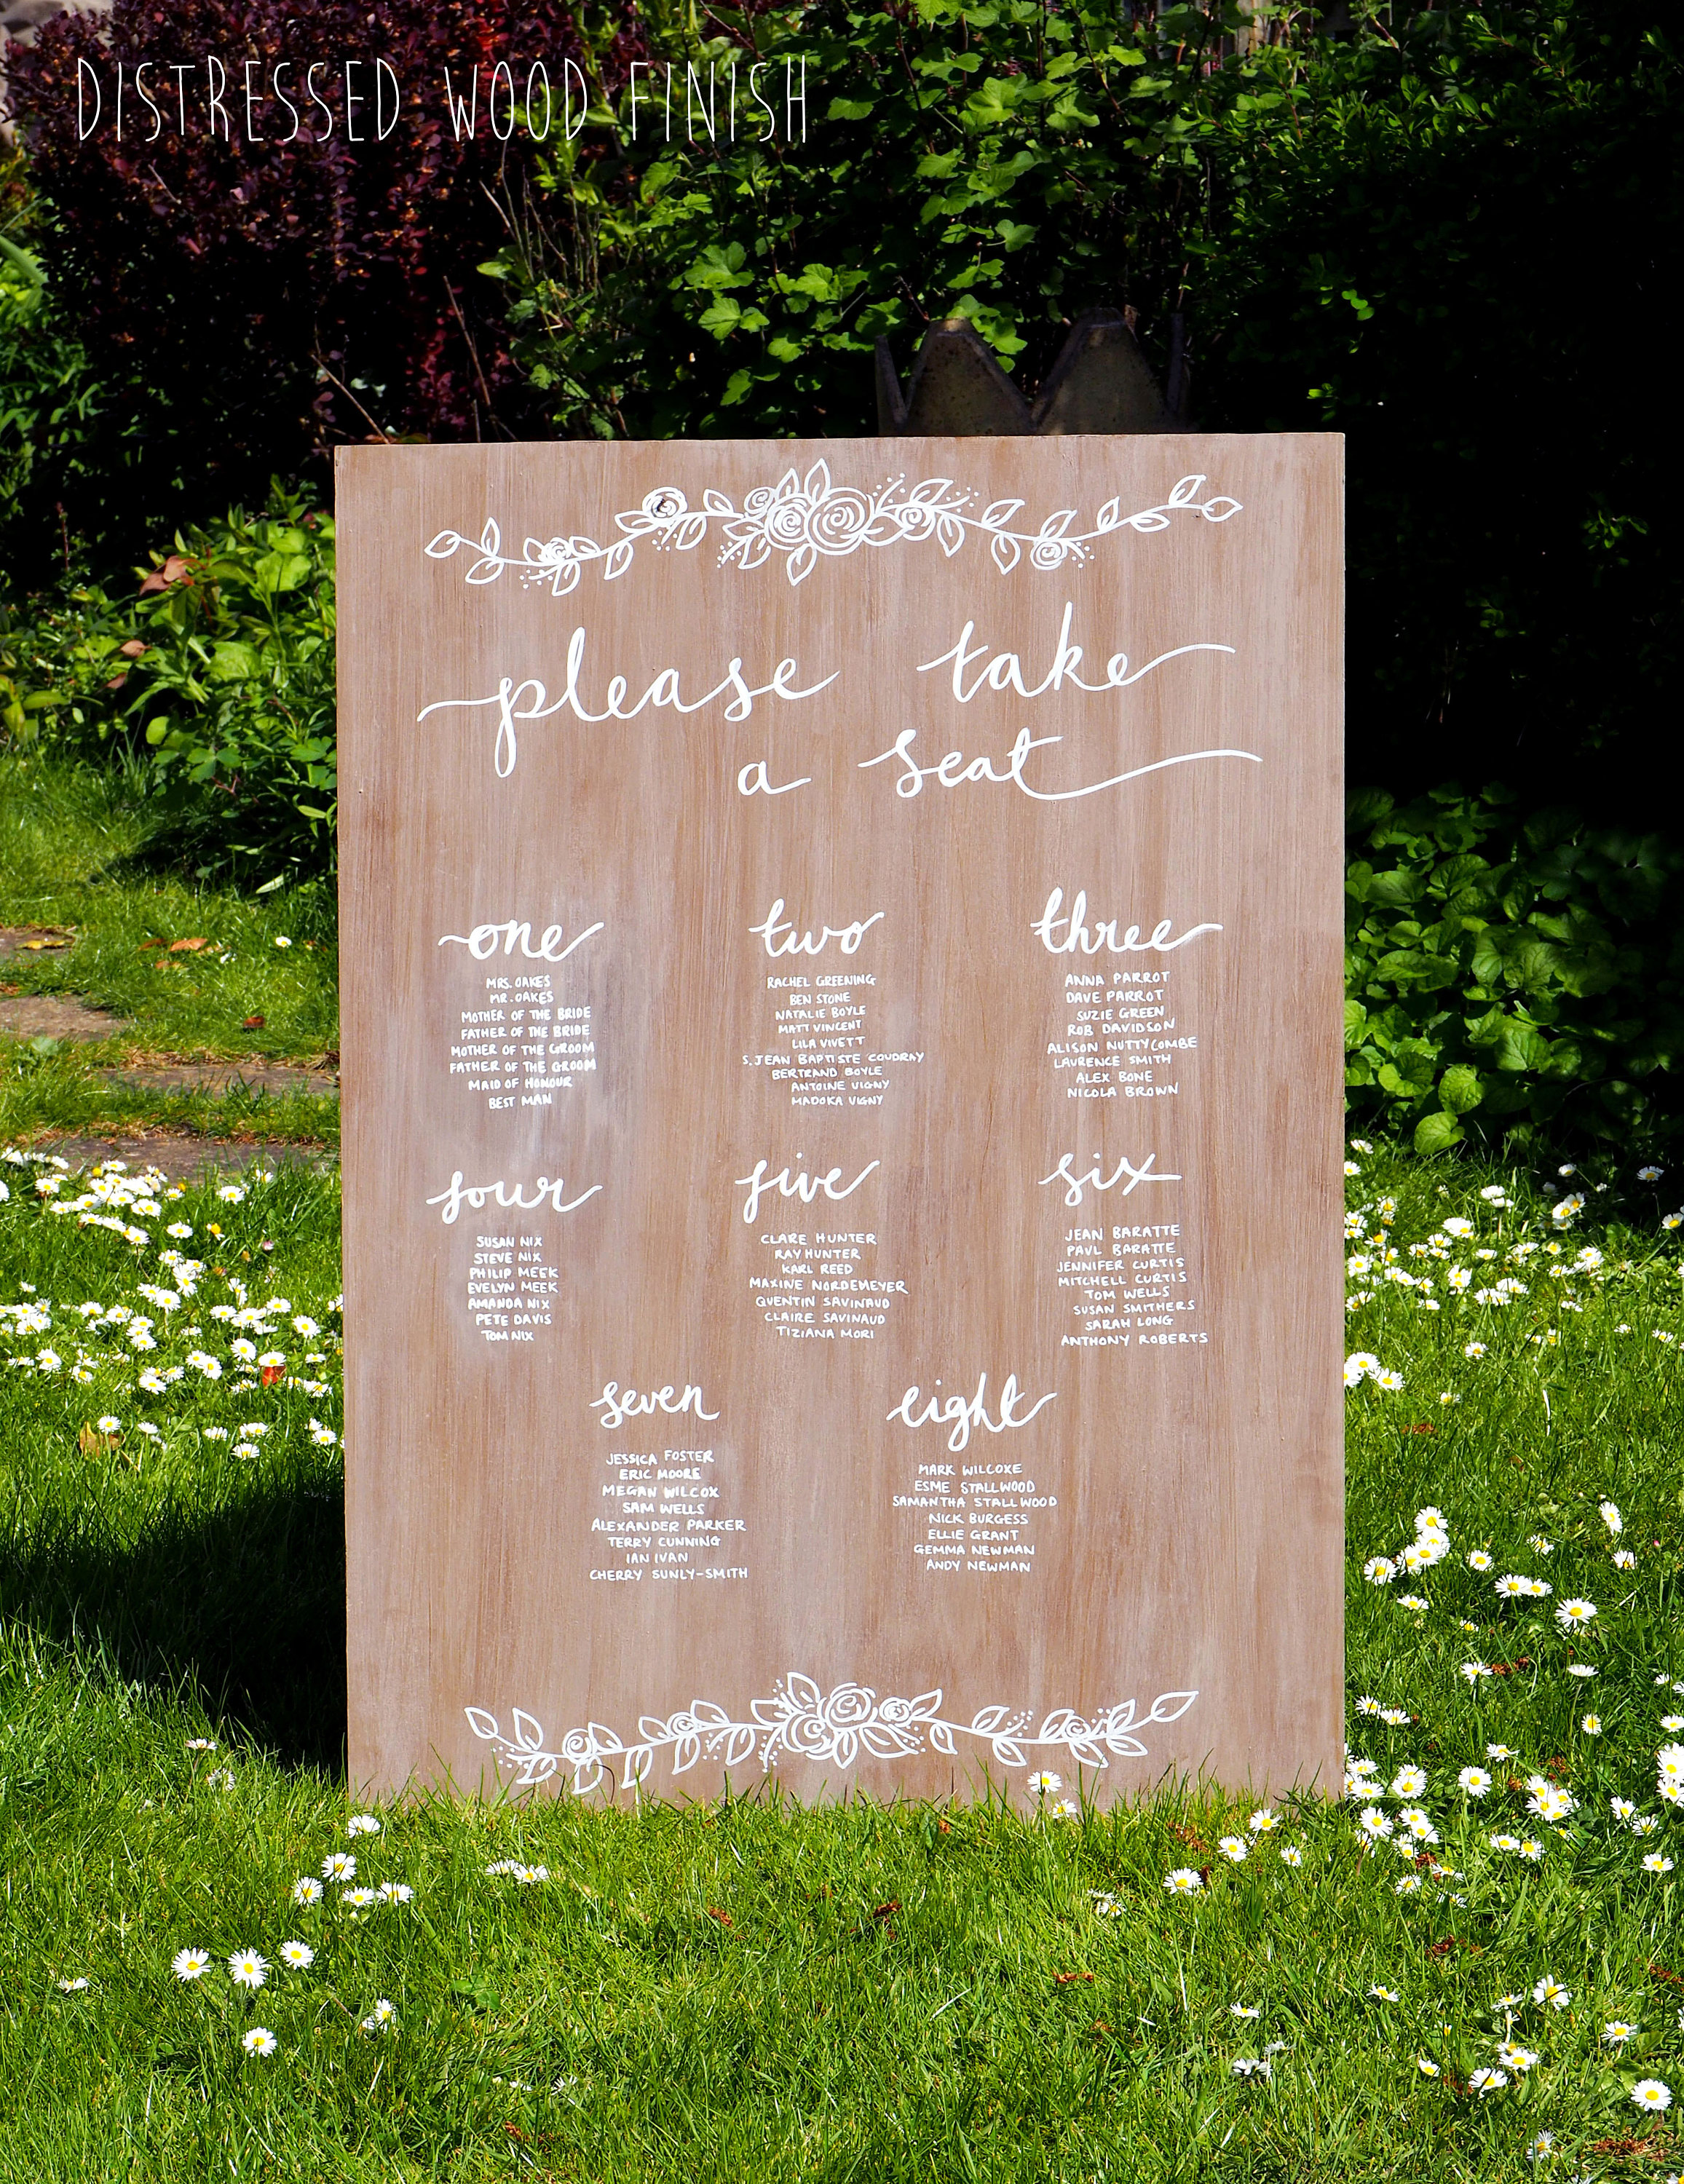 DISTRESSED WOOD FINISH
please take
a seat
one
MRS. OAKES
MR. OAKES
MOTHER OF THE BRIDE
FATHER OF THE BRIDE
MOTHER OF THE GROOM
FATHER OF THE GROOM
MAID OF HONOUR
BEST MAN
two
RACHEL GREENING
BEN STONE
NATALIE BOYLE
MATT VINCENT
LILA VIVETT
S. JEAN BAPTISTE COUDRAY
BERTRAND BOYLE
ANTOINE VIGNY
MADOKA VIGNY
three
ANNA PARROT
DAVE PARROT
SUZIE GREEN
ROB DAVIDSON
ALISON NUTTYCOMBE
LAURENCE SMITH
ALEX BONE
NICOLA BROWN
four
SUSAN NIX
STEVE NIX
PHILIP MEEK
EVELYN MEEK
AMANDA NIX
PETE DAVIS
TOM NIX
five
CLARE HUNTER
RAY HUNTER
KARL REED
MAXINE NORDEMEYER
QUENTIN SAVINAUD
CLAIRE SAVINAUD
TIZIANA MORI
six
JEAN BARATTE
PAUL BARATTE
JENNIFER CURTIS
MITCHELL CURTIS
TOM WELLS
SUSAN SMITHERS
SARAH LONG
ANTHONY ROBERTS
seven
JESSICA FOSTER
ERIC MOORE
MEGAN WILCOX
SAM WELLS
ALEXANDER PARKER
TERRY CUNNING
IAN IVAN
CHERRY SUNLY-SMITH
eight
MARK WILCOXE
ESME STALLWOOD
SAMANTHA STALLWOOD
NICK BURGESS
ELLIE GRANT
GEMMA NEWMAN
ANDY NEWMAN